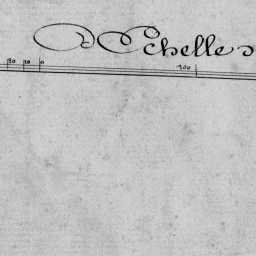 Echelle d
20 10 0 100